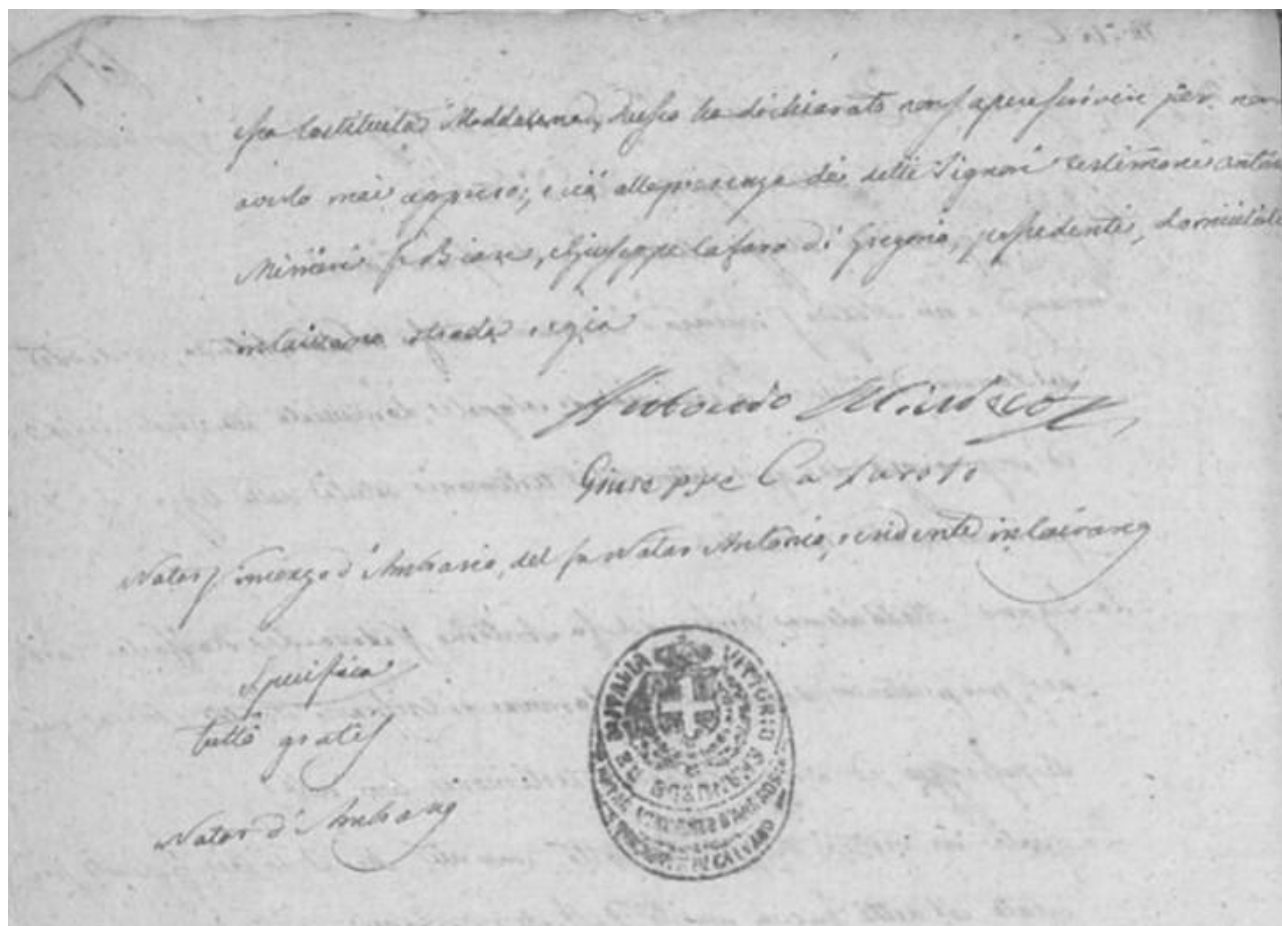 essa costituita Maddalena, stessa ha dichiarato non sapere scrivere per non
averlo mai appreso; e ciò alla presenza dei detti Signori testimoni Anton
fu Biase, e Giuseppe Cafaro di Gregorio, possidenti, domiciliati
in Caivano strada regia
Antonio
Giuseppe Cafaro
Notar Vincenzo d'Ambrosio, del fu Notar Antonio, residente in Caivano
Specifica
tutto gratis
Notar d'Ambrosio
VITTORIO EMANUELE RE D'ITALIA
NOTAR VINCENZO D'AMBROSIO
DI CAIVANO